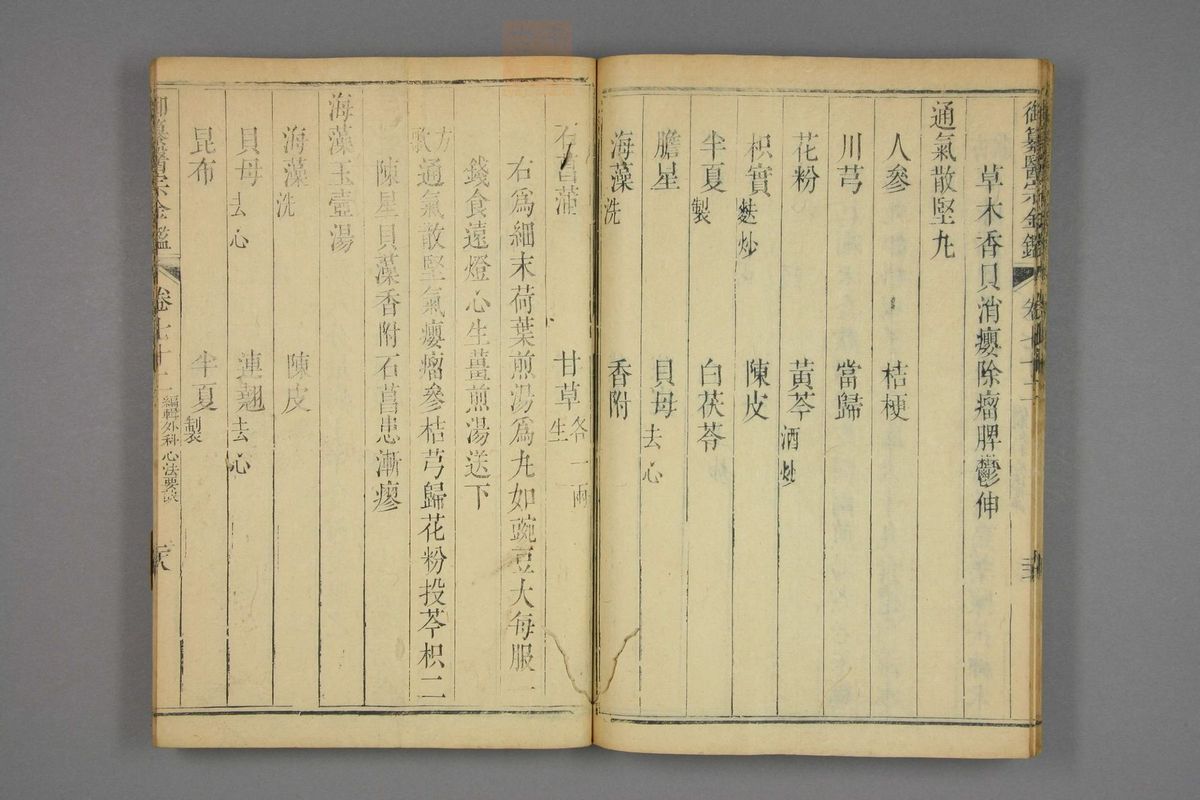 御纂醫宗金鑑 卷七十二
草木香貝消癭除瘤脾鬱伸
通氣散堅丸
人參 桔梗
川芎 當歸
花粉 黃芩酒炒
枳實麩炒 陳皮
半夏製 白茯苓
膽星 貝母去心
海藻洗 香附
石菖蒲 甘草生 各一兩
右爲細末荷葉煎湯爲丸如豌豆大每服一
錢食遠燈心生薑煎湯送下
方歌 通氣散堅氣癭瘤參桔芎歸花粉投芩枳二
陳星貝藻香附石菖患漸瘳
海藻玉壺湯
海藻洗 陳皮
貝母去心 連翹去心
昆布 半夏製
御纂醫宗金鑑 卷七十二 編輯外科心法要訣